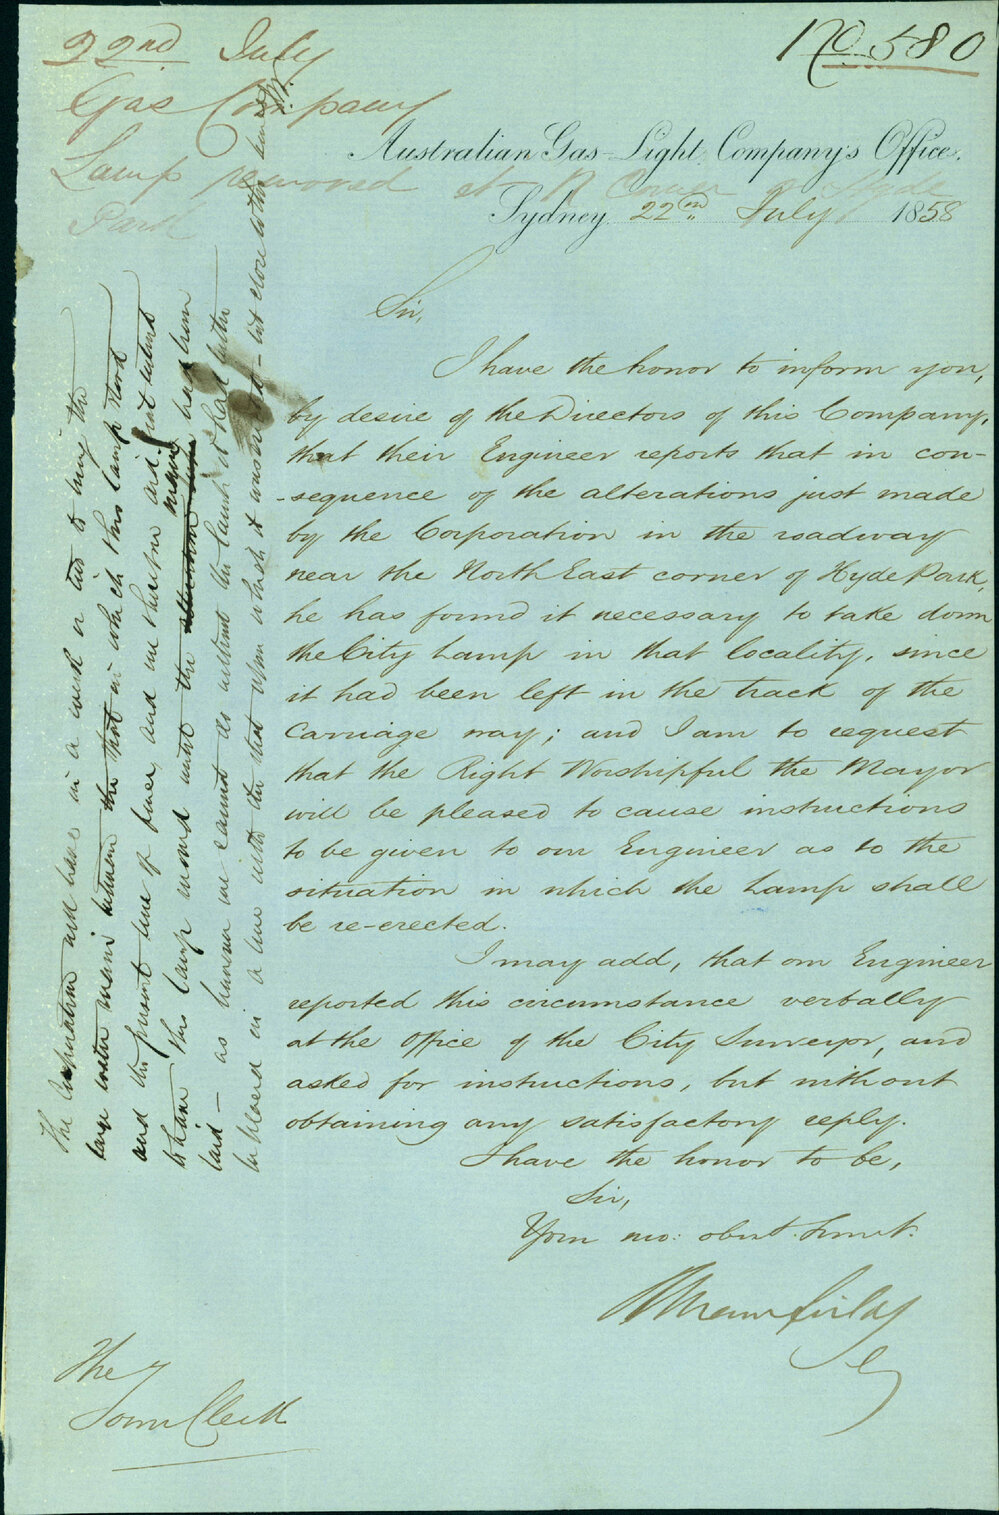 22nd July
No 580
Gas Company
Lamp removed at N Corner of Hyde
Park
Australian Gas-Light Company's Office,
Sydney 22nd July 1858
Sir,
I have the honor to inform you,
by desire of the Directors of this Company,
that their Engineer reports that in con-
-sequence of the alterations just made
by the Corporation in the roadway
near the North East corner of Hyde Park,
he has found it necessary to take down
the City Lamp in that locality, since
it had been left in the track of the
Carriage way; and I am to request
that the Right Worshipful the Mayor
will be pleased to cause instructions
to be given to our Engineer as to the
situation in which the Lamp shall
be re-erected.
I may add, that our Engineer
reported this circumstance verbally
at the Office of the City Surveyor, and
asked for instructions, but without
obtaining any satisfactory reply.
I have the honor to be,
Sir,
Your mo: obedt. Servt.
The
Town Clerk
The Corporation will have in a week or two to bring the
large water main between the that in which this lamp stood
and the present line of pipes, and we therefore did not intend
to have this lamp moved until the alteration main had been
laid - as however we cannot as without the launch it had better
be placed in a line with that upon which it was - but close to the